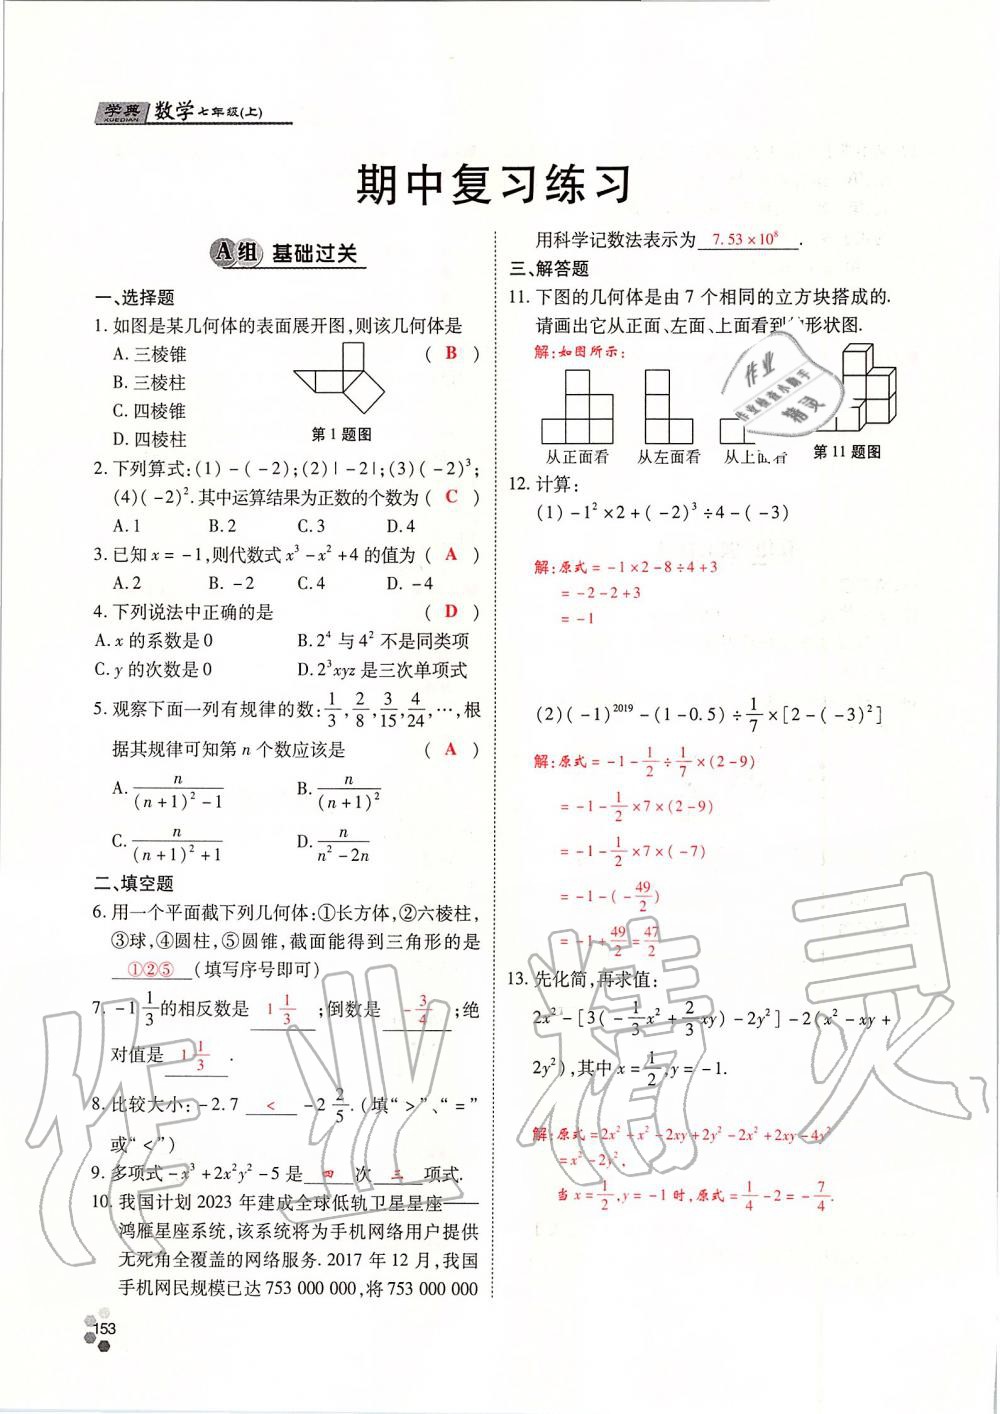 学典 数学七年级(上)
XUEDIAN
期中复习练习
A组 基础过关
一、选择题
1. 如图是某几何体的表面展开图,则该几何体是
A. 三棱锥 ( B )
B. 三棱柱
C. 四棱锥
D. 四棱柱
第1题图
2. 下列算式:(1) -(-2);(2)|-2|;(3)(-2)³;
(4)(-2)². 其中运算结果为正数的个数为 ( C )
A. 1 B. 2 C. 3 D. 4
3. 已知 x = -1,则代数式 x³ - x² + 4 的值为 ( A )
A. 2 B. -2 C. 4 D. -4
4. 下列说法中正确的是 ( D )
A. x 的系数是 0 B. 2⁴ 与 4² 不是同类项
C. y 的次数是 0 D. 2³xyz 是三次单项式
5. 观察下面一列有规律的数: 1/3, 2/8, 3/15, 4/24, …,根
据其规律可知第 n 个数应该是 ( A )
A. n/((n+1)²-1) B. n/(n+1)²
C. n/((n+1)²+1) D. n/(n²-2n)
二、填空题
6. 用一个平面截下列几何体:①长方体,②六棱柱,
③球,④圆柱,⑤圆锥,截面能得到三角形的是
①②⑤ (填写序号即可)
7. -1 1/3 的相反数是 1 1/3 ;倒数是 -3/4 ;绝
对值是 1 1/3 .
8. 比较大小: -2.7 < -2 2/5. (填“>”、“=”
或“<”)
9. 多项式 -x³ + 2x²y² - 5 是 四 次 三 项式.
10. 我国计划 2023 年建成全球低轨卫星星座——
鸿雁星座系统,该系统将为手机网络用户提供
无死角全覆盖的网络服务. 2017 年 12 月,我国
手机网民规模已达 753 000 000,将 753 000 000
153
用科学记数法表示为 7.53×10⁸ .
三、解答题
11. 下图的几何体是由 7 个相同的立方块搭成的.
请画出它从正面、左面、上面看到的形状图.
解:如图所示:
从正面看 从左面看 从上面看 第11题图
作业
作业检查小助手
精灵
12. 计算:
(1) -1²×2+(-2)³÷4-(-3)
解:原式 = -1×2-8÷4+3
= -2-2+3
= -1
(2)(-1)²⁰¹⁹-(1-0.5)÷1/7×[2-(-3)²]
解:原式 = -1-1/2÷1/7×(2-9)
= -1-1/2×7×(2-9)
= -1-1/2×7×(-7)
= -1-(-49/2)
= -1+49/2=47/2
13. 先化简,再求值:
2x²-[3(-1/3x²+2/3xy)-2y²]-2(x²-xy+
2y²),其中 x=1/2,y=-1.
解:原式=2x²+x²-2xy+2y²-2x²+2xy-4y²
=x²-2y².
当x=1/2,y=-1时,原式=1/4-2=-7/4.
作业精灵